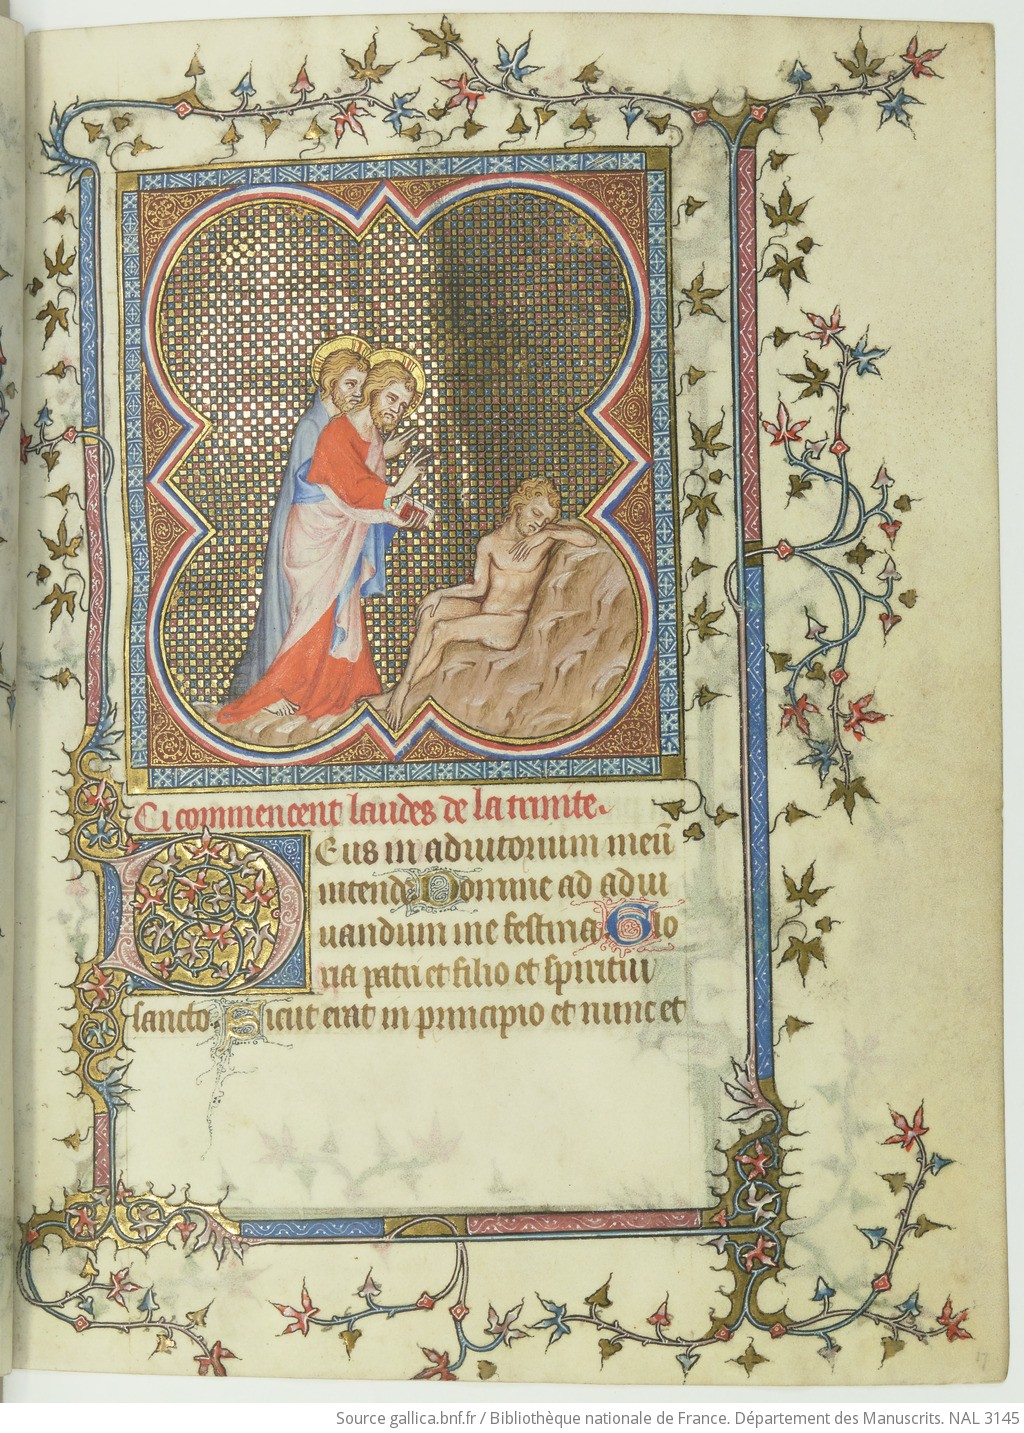 Ci commencent laudes de la trinite.
Deus in adiutorium meū
intende Domine ad adiu
uandum me festina Glo
ria patri et filio et spiritui
sancto. Sicut erat in principio et nunc et
17
Source gallica.bnf.fr / Bibliothèque nationale de France. Département des Manuscrits. NAL 3145